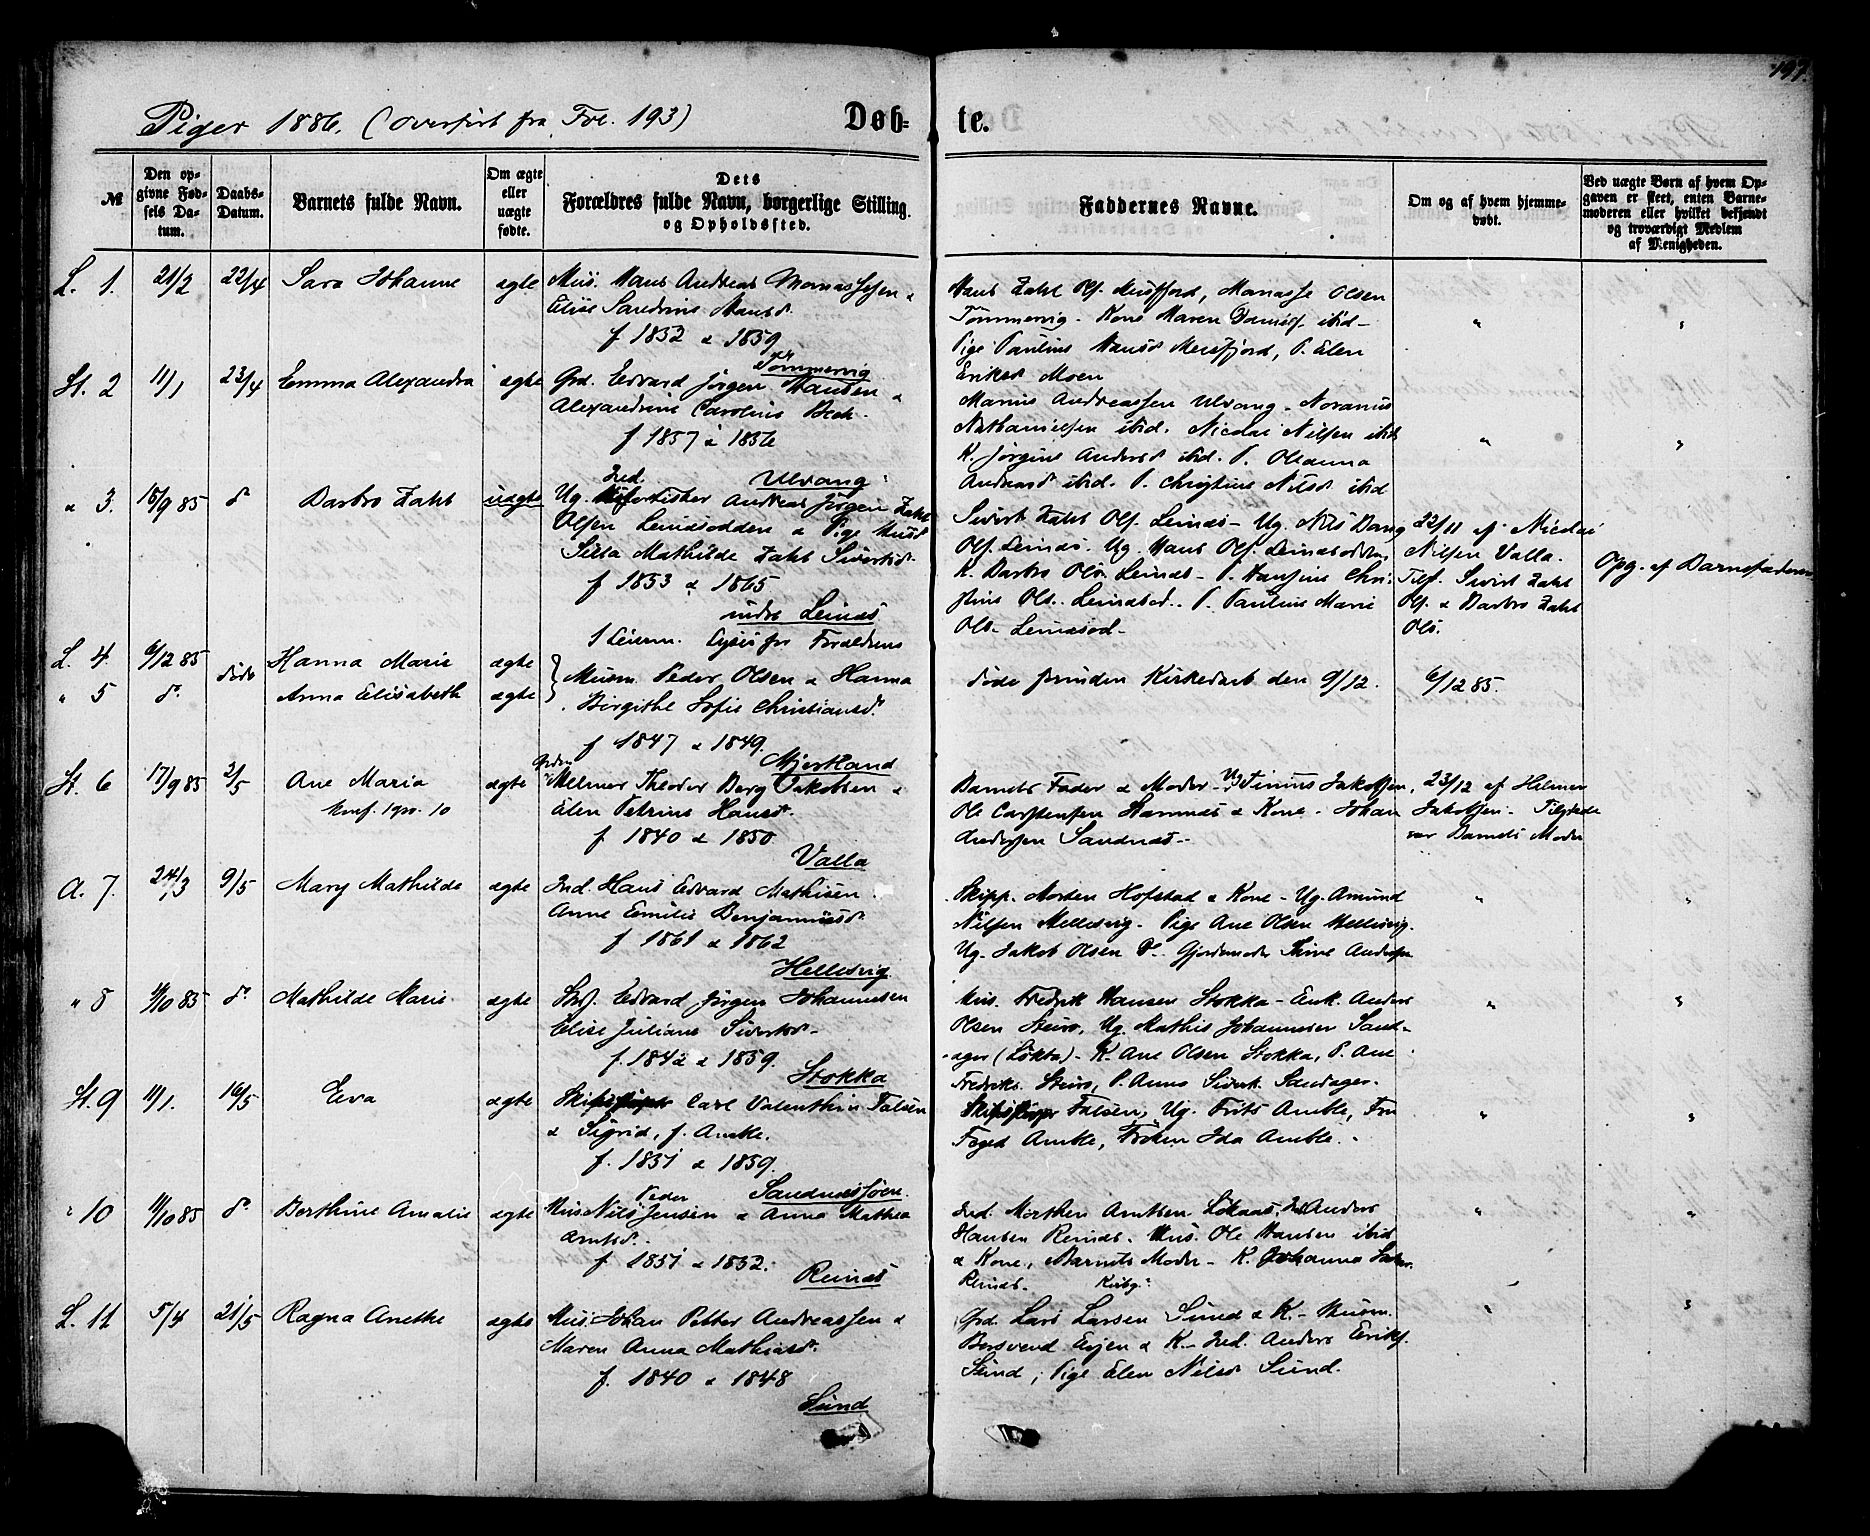 197.
Piger 1886. (overført fra Fol. 193)
Døb-
te.
№
Den op-
givne Fød-
sels Da-
tum.
Daabs-
Datum.
Barnets fulde Navn.
Om ægte
eller
uægte
fødte.
Dets
Forældres fulde Navn, borgerlige Stilling
og Opholdssted.
Faddernes Navne.
Om og af hvem hjemme-
døbt.
Ved uægte Børn af hvem Op-
gaven er skeet, enten Barne-
moderen eller hvilket bekjendt
og troværdigt Medlem
af Menigheden.
L. 1. 21/2 22/4 Sara Johanne ægte Mus. Hans Andreas Thomassesen &
Elise Sandrine Hansd.
f 1852 & 1859
Tømmervig
Hans Zahl Ols. Meisfjord, Manasse Olsen
Tømmervig - Kone Maren Daniels. ibid -
Pige Pauline Hansd Meisfjord, P. Elen
Eriksd Moen
St. 2 11/1 23/4 Emma Alexandra ægte Grd. Edvard Jørgen Hansen &
Alexandrine Caroline Bech.
f 1857 & 1856
Ulvang
Marius Andreassen Ulvang - Noranus
Nathanielsen ibid. Nicolai Nilsen ibid
K. Jørgine Andersd ibid. P. Oleanna
Andersd ibid. P. Christine Nilsd ibid
" 3. 16/9 85 do Barbro Zahl uægte Ug. Ind. Andreas Jørgen Zahl
Olsen Leinesodden & Pige
Silla Mathilde Zahl Sivertsd.
f 1853 & 1865
indre Leines
1 Leierm.
Sivert Zahl Ols. Leinæs - Ug. Nils Dang
Ols. Leinæs. Ug. Hans Ols. Leinesodden,
K. Barbro Olsd. Leinæs - P. Hansine Chri-
stine Ols. Leinesod. P. Pauline Marie
Ols. Leinesod -
22/11 af Nicolai
Nilsen Valla.
Tilst. Sivert Zahl
Ols. & Barbro Zahl
Ols.
Opg. af Barnefaderen
L. 4. 6/12 85 døde Hanna Marie ægte
" 5 do Anna Elisabeth ægte
Musm. Peder Olsen & Hanna
Birgithe Sofie Christiansd.
f 1847 & 1849.
Mjertland
døde forinden Kirkedaab den 9/12.
6/12 85.
St. 6 17/9 85 2/5 Ane Maria
ægte Helmer Theodor Berg Jakobsen &
Elen Petrine Hansd.
f 1840 & 1850
Valla
Barnets Fader & Moder - Ug. Tinius Jakobsen,
Ole Carstensen Hamnæs & Kone - Johan
Andersen Sandnæs -
23/12 af Helmer
Jakobsen - Tilstede
var Barnets Moder
A. 7. 24/3 9/5 Mary Mathilde ægte Ind. Hans Edvard Mathisen
Anne Emilie Benjaminsd.
f 1861 & 1862
Hellesvig
Skipp. Morten Hofstad & Kone - Ug. Amund
Nilsen Hellesvig - Pige Ane Olsen Hellesvig.
Ug. Jakob Olsen
" 8 /10 85 do Mathilde Marie ægte Edvard Jørgen Johannesen
Elise Juliane Sivertsd -
f. 1842 & 1859.
Stokka
Mus. Fredrik Hansen Stokka - Enk. Anders
Olsen Sturo, Ug. Mathis Johannesen Sand-
ager (Løkta) - K. Ane Olsen Stokka, P. Ane
Fredriks. Sturo, P. Anna Sivert. Sandager.
St. 9 11/1. 16/5 Eva ægte Carl Valenthin Falsen
& Sigrid, f. Amble.
f. 1851 & 1859.
Sandnessjøen
Falsen, Ug. Frits Amble, Fru
Foged Amble, Frøken Ida Amble.
" 10 11/10 85 do Berthine Amalie ægte Mus Nils Peder Jensen & Anna Mathea
Arntsd.
f 1851 & 1852.
Reines
Ind. Morthen Arntsen Løkaas, Ind Anders
Hansen Reinæs. Mus. Ole Hansen ibid
& Kone, Barnets Moder - K. Johanna
Reinæs.
L. 11 5/4 21/5 Ragna Anethe ægte Mus. Johan Petter Andreassen &
Maren Anna Mathiasd.
f. 1840 & 1848
Sund
Grd. Lars Larsen Sund & K. - Musm.
Borsvend Evjen & K. - Ind. Anders Eriks.
Sund, Pige Elen Nilsd Sund.